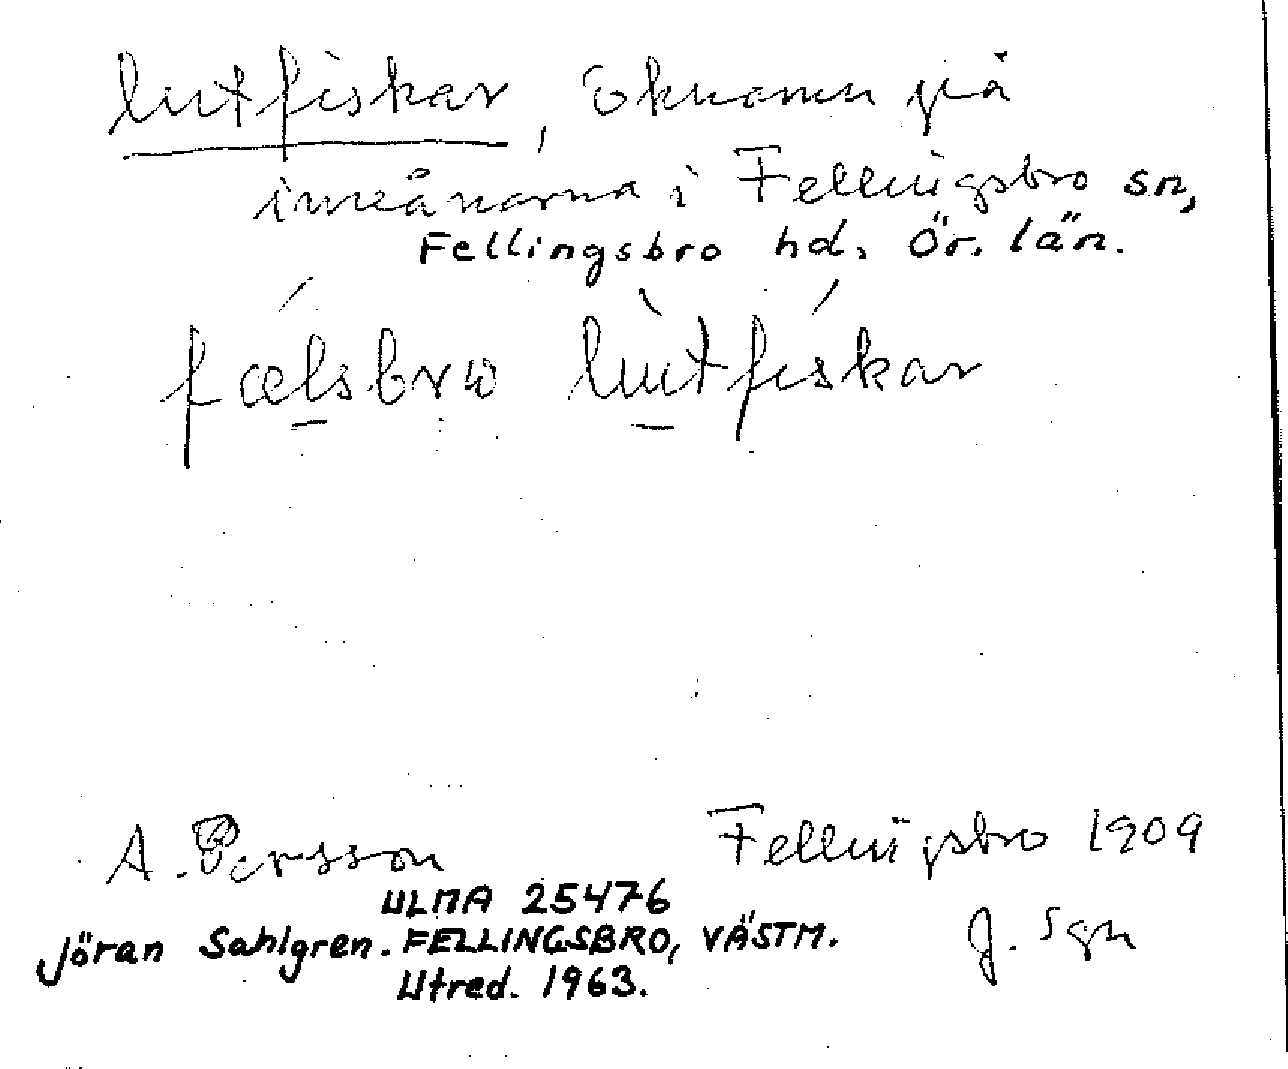 lutfiskar, öknamn på
invånarna i Fellingsbro sn,
Fellingsbro hd. Ör. län.
fælsbro lutfiskar
A. Persson Fellingsbro 1909
ULMA 25476
Jöran Sahlgren. FELLINGSBRO, VÄSTM. J. Sgn
Utred. 1963.